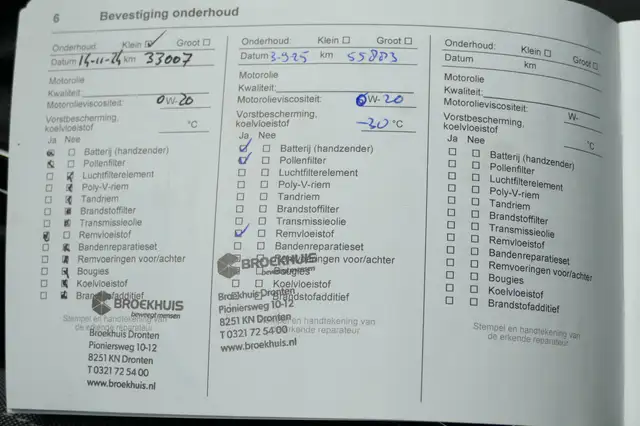 6 Bevestiging onderhoud
Onderhoud: Klein Groot
Datum 14-11-24 km 33007
Motorolie
Kwaliteit:
Motorolieviscositeit: 0W-20
Vorstbescherming,
koelvloeistof °C
Ja Nee
Batterij (handzender)
Pollenfilter
Luchtfilterelement
Poly-V-riem
Tandriem
Brandstoffilter
Transmissieolie
Remvloeistof
Bandenreparatieset
Remvoeringen voor/achter
Bougies
Koelvloeistof
Brandstofadditief
BROEKHUIS
beweegt mensen
Stempel en handtekening van
de erkende reparateur
Broekhuis Dronten
Pioniersweg 10-12
8251 KN Dronten
T 0321 72 54 00
www.broekhuis.nl
Onderhoud: Klein Groot
Datum 3-9-25 km
Motorolie
Kwaliteit:
Motorolieviscositeit: 0W-20
Vorstbescherming,
koelvloeistof -30 °C
Ja Nee
Batterij (handzender)
Pollenfilter
Luchtfilterelement
Poly-V-riem
Tandriem
Brandstoffilter
Transmissieolie
Remvloeistof
Bandenreparatieset
Remvoeringen voor/achter
Bougies
Koelvloeistof
Brandstofadditief
BROEKHUIS
beweegt mensen
Broekhuis Dronten
Pioniersweg 10-12
8251 KN Dronten
T 0321 72 54 00
www.broekhuis.nl
Stempel en handtekening van
de erkende reparateur
Onderhoud: Klein Groot
Datum km
Motorolie
Kwaliteit:
Motorolieviscositeit: W-
Vorstbescherming,
koelvloeistof °C
Ja Nee
Batterij (handzender)
Pollenfilter
Luchtfilterelement
Poly-V-riem
Tandriem
Brandstoffilter
Transmissieolie
Remvloeistof
Bandenreparatieset
Remvoeringen voor/achter
Bougies
Koelvloeistof
Brandstofadditief
Stempel en handtekening van
de erkende reparateur.